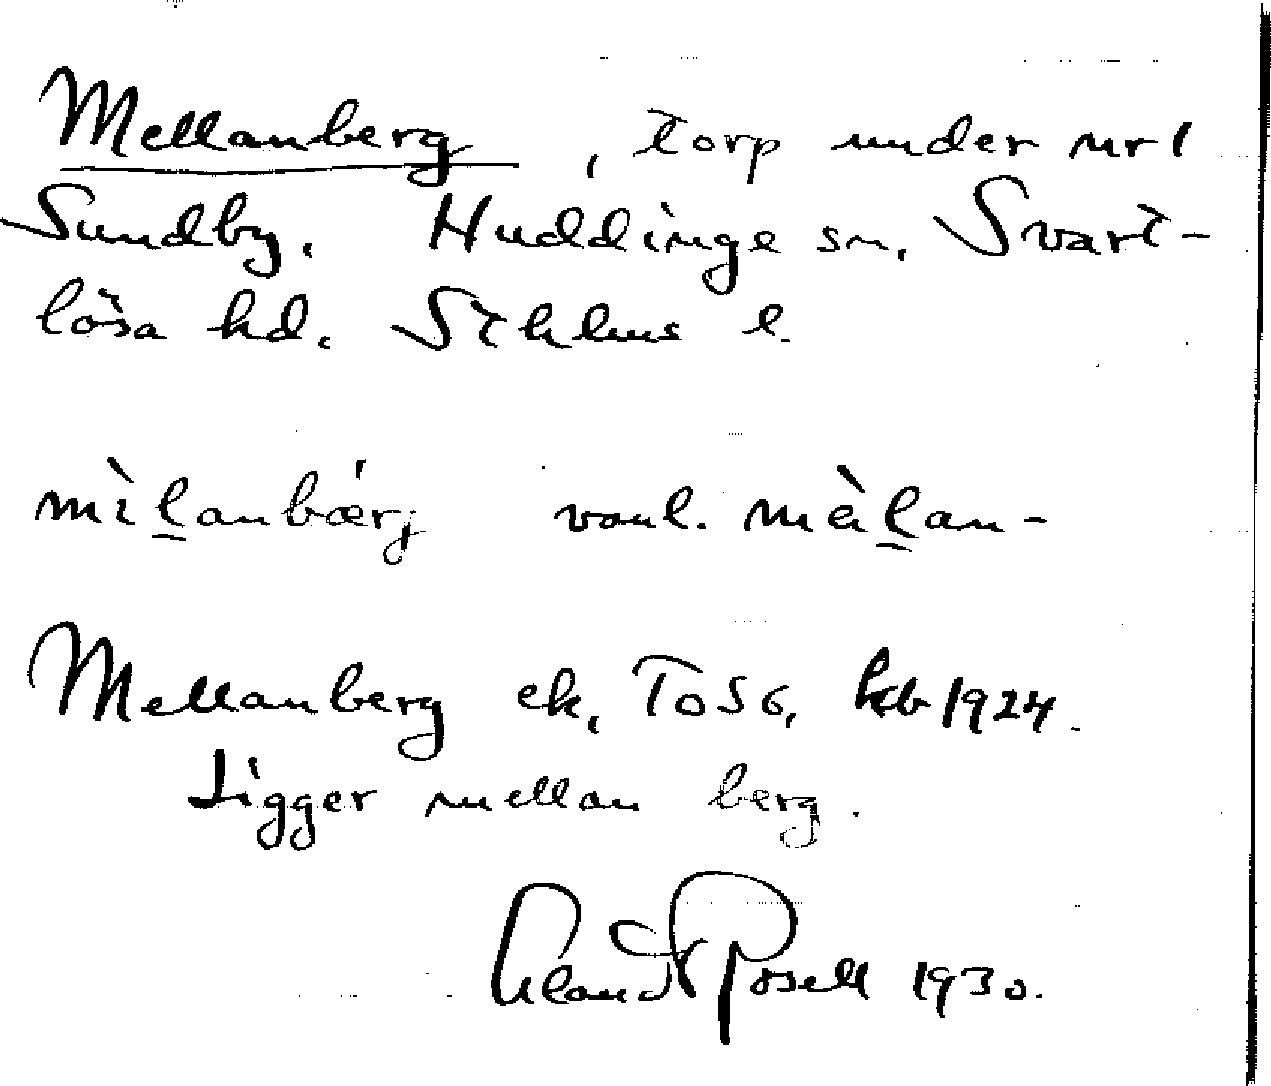 Mellanberg, torp under nr 1
Sundby. Huddinge sn, Svart-
lösa hd. Sthlms l.
mìl̠anbǽrj vanl. mèl̠an-
Mellanberg ek, To S6, kb 1924.
Ligger mellan berg.
Rosell 1930.